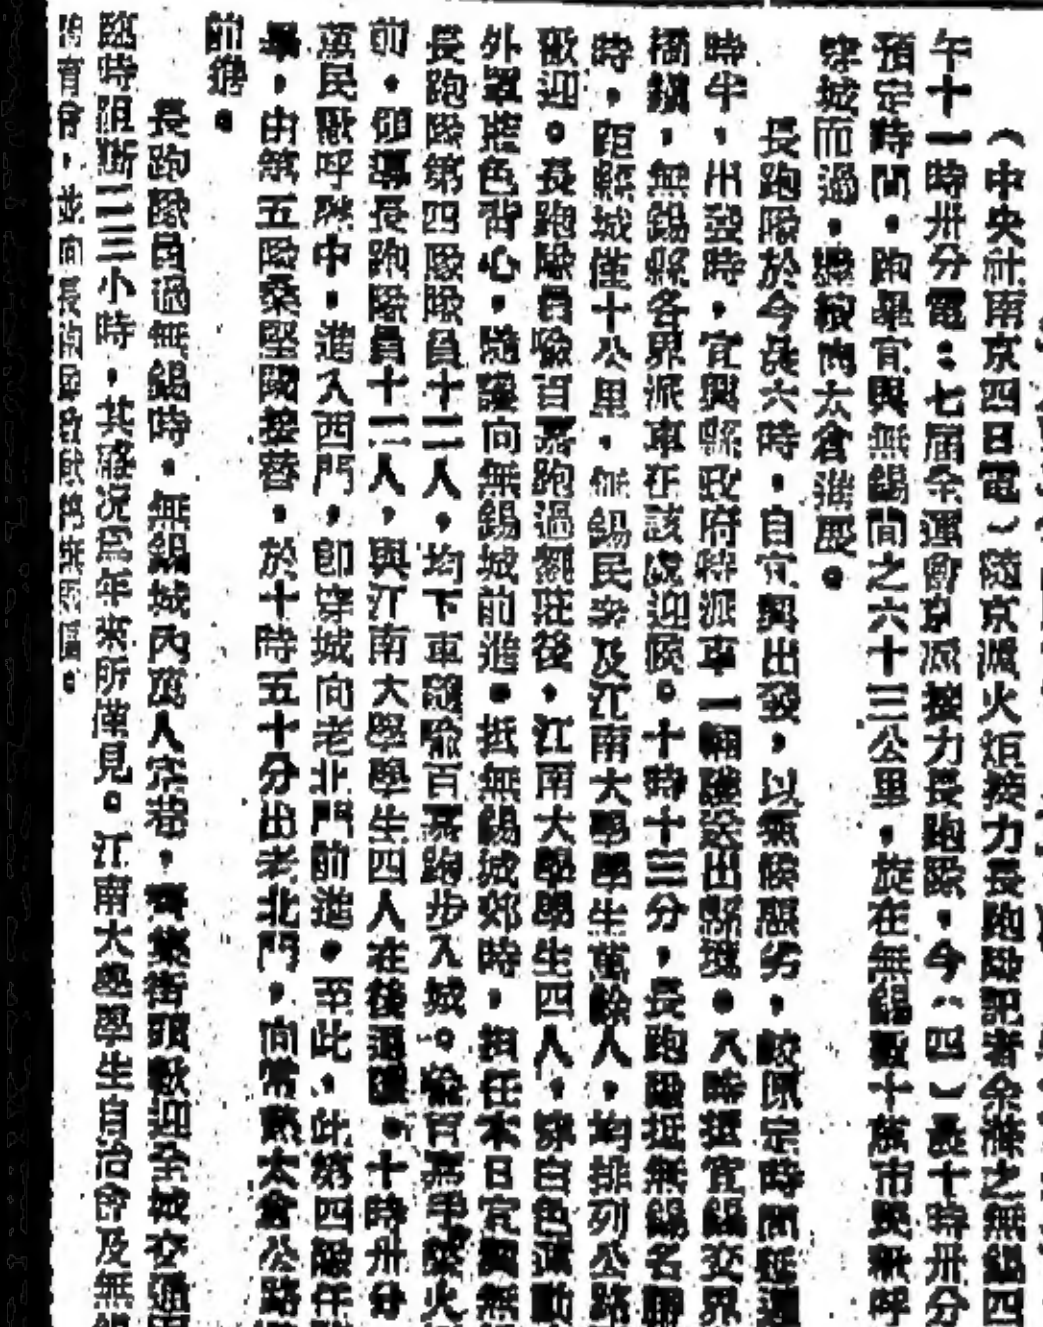 (中央社南京四日電)隨京滬火炬接力長跑隊記者余滌之無錫四
午十一時卅分電:七屆全運會京滬接力長跑隊,今(四)晨十時卅分
預定時間,跑畢宜興無錫間之六十三公里,旋在無錫數十萬市民歡呼
穿城而過,繼續向太倉進展。
長跑隊於今晨六時,自宜興出發,以氣候惡劣,較原定時間延遲
時半,出發時,宜興縣政府特派車一輛護送出縣境。入時抵宜錫交界
橋鎮,無錫縣各界派車在該處迎候。十時十三分,長跑隊抵無錫名勝
時,距縣城僅十八里,無錫民衆及江南大學學生萬餘人,均排列公路
歡迎。長跑隊員喻百嘉跑過 莊後,江南大學學生四人,穿白色運動
外罩藍色背心,隨護向無錫城前進。抵無錫城郊時,担任本日宜興無
長跑隊第四隊隊員十二人,均下車隨喻百嘉跑步入城。喻百嘉手舉火
前,領導長跑隊員十二人,與江南大學學生四人在後追隨。十時卅分
萬民歡呼聲中,進入西門,卽穿城向老北門前進,至此,此第四隊任
畢,由第五隊桑堅 接替,於十時五十分出老北門,向常熟太倉公路
前進。
長跑隊員過無錫時,無錫城內萬人空巷, 集街頭歡迎全城交通
臨時阻斷二三小時,其盛況爲年來所僅見。江南大學學生自治會及無錫
體育會,並向長跑隊致獻錦旗 。